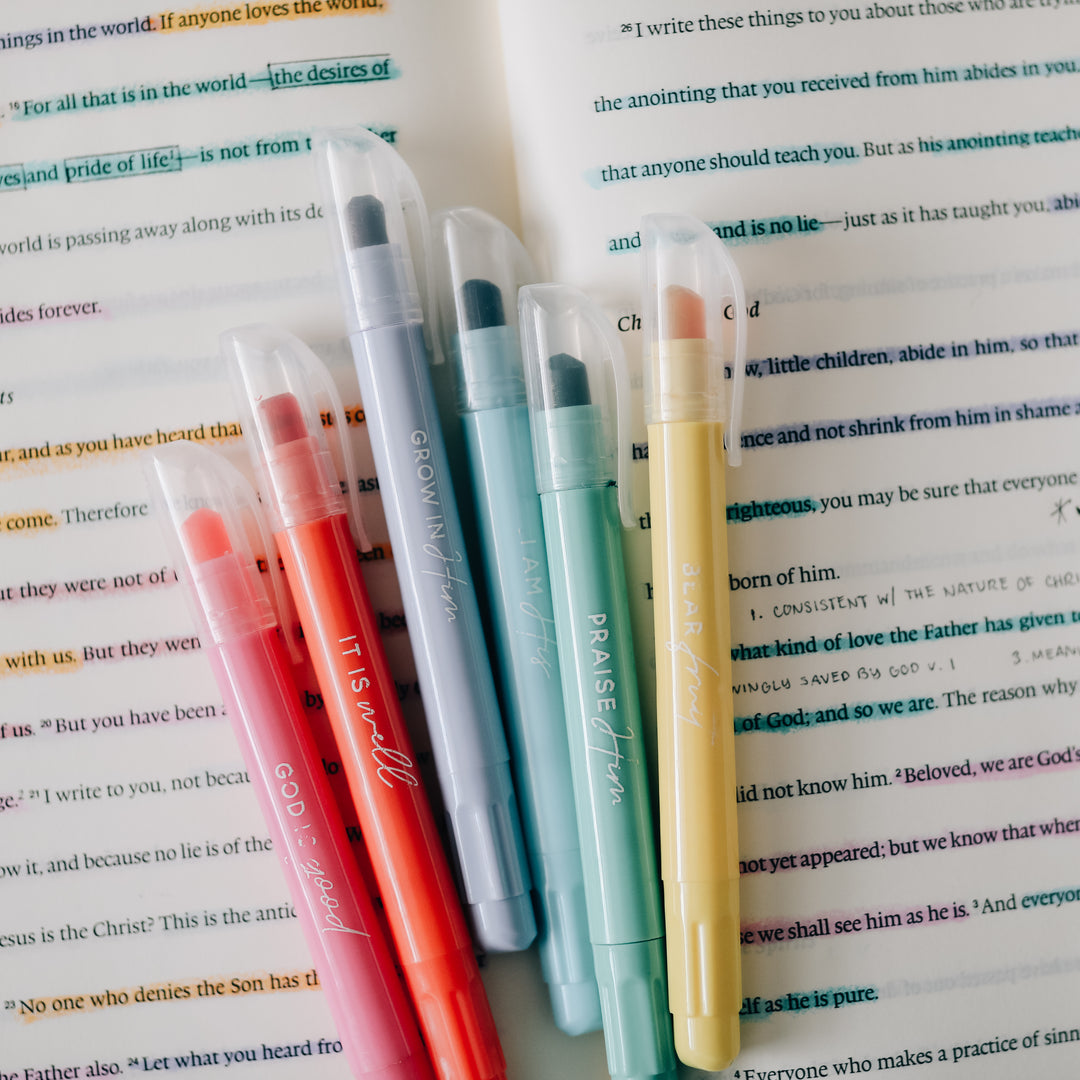 things in the world. If anyone loves the world,
15 For all that is in the world—the desires of
yes and pride of life—is not from
world is passing away along with its
ides forever.
ts
r, and as you have heard that
come. Therefore
t they were not of
with us. But they
f us. 20 But you have been
21 I write to you, not
w it, and because no lie is of the
esus is the Christ? This is the
23 No one who denies the Son has
he Father also. 24 Let what you heard
GOD IS good
IT IS well
GROW IN Him
I AM His
PRAISE Him
BEAR fruit
26 I write these things to you about those who are
the anointing that you received from him abides in you,
that anyone should teach you. But as his anointing
and and is no lie—just as it has taught you,
God
little children, abide in him, so that
and not shrink from him in shame
righteous, you may be sure that everyone
born of him.
1. CONSISTENT W/ THE NATURE OF
what kind of love the Father has given
SAVED BY GOD V. 1 3.
of God; and so we are. The reason why
did not know him. 2 Beloved, we are God's
not yet appeared; but we know that when
we shall see him as he is. 3 And
as he is pure.
4 Everyone who makes a practice of